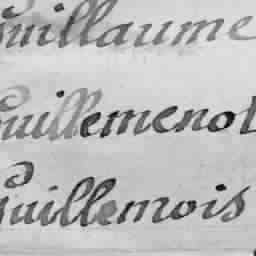 Guillaume
Guillemenot
Guillemois